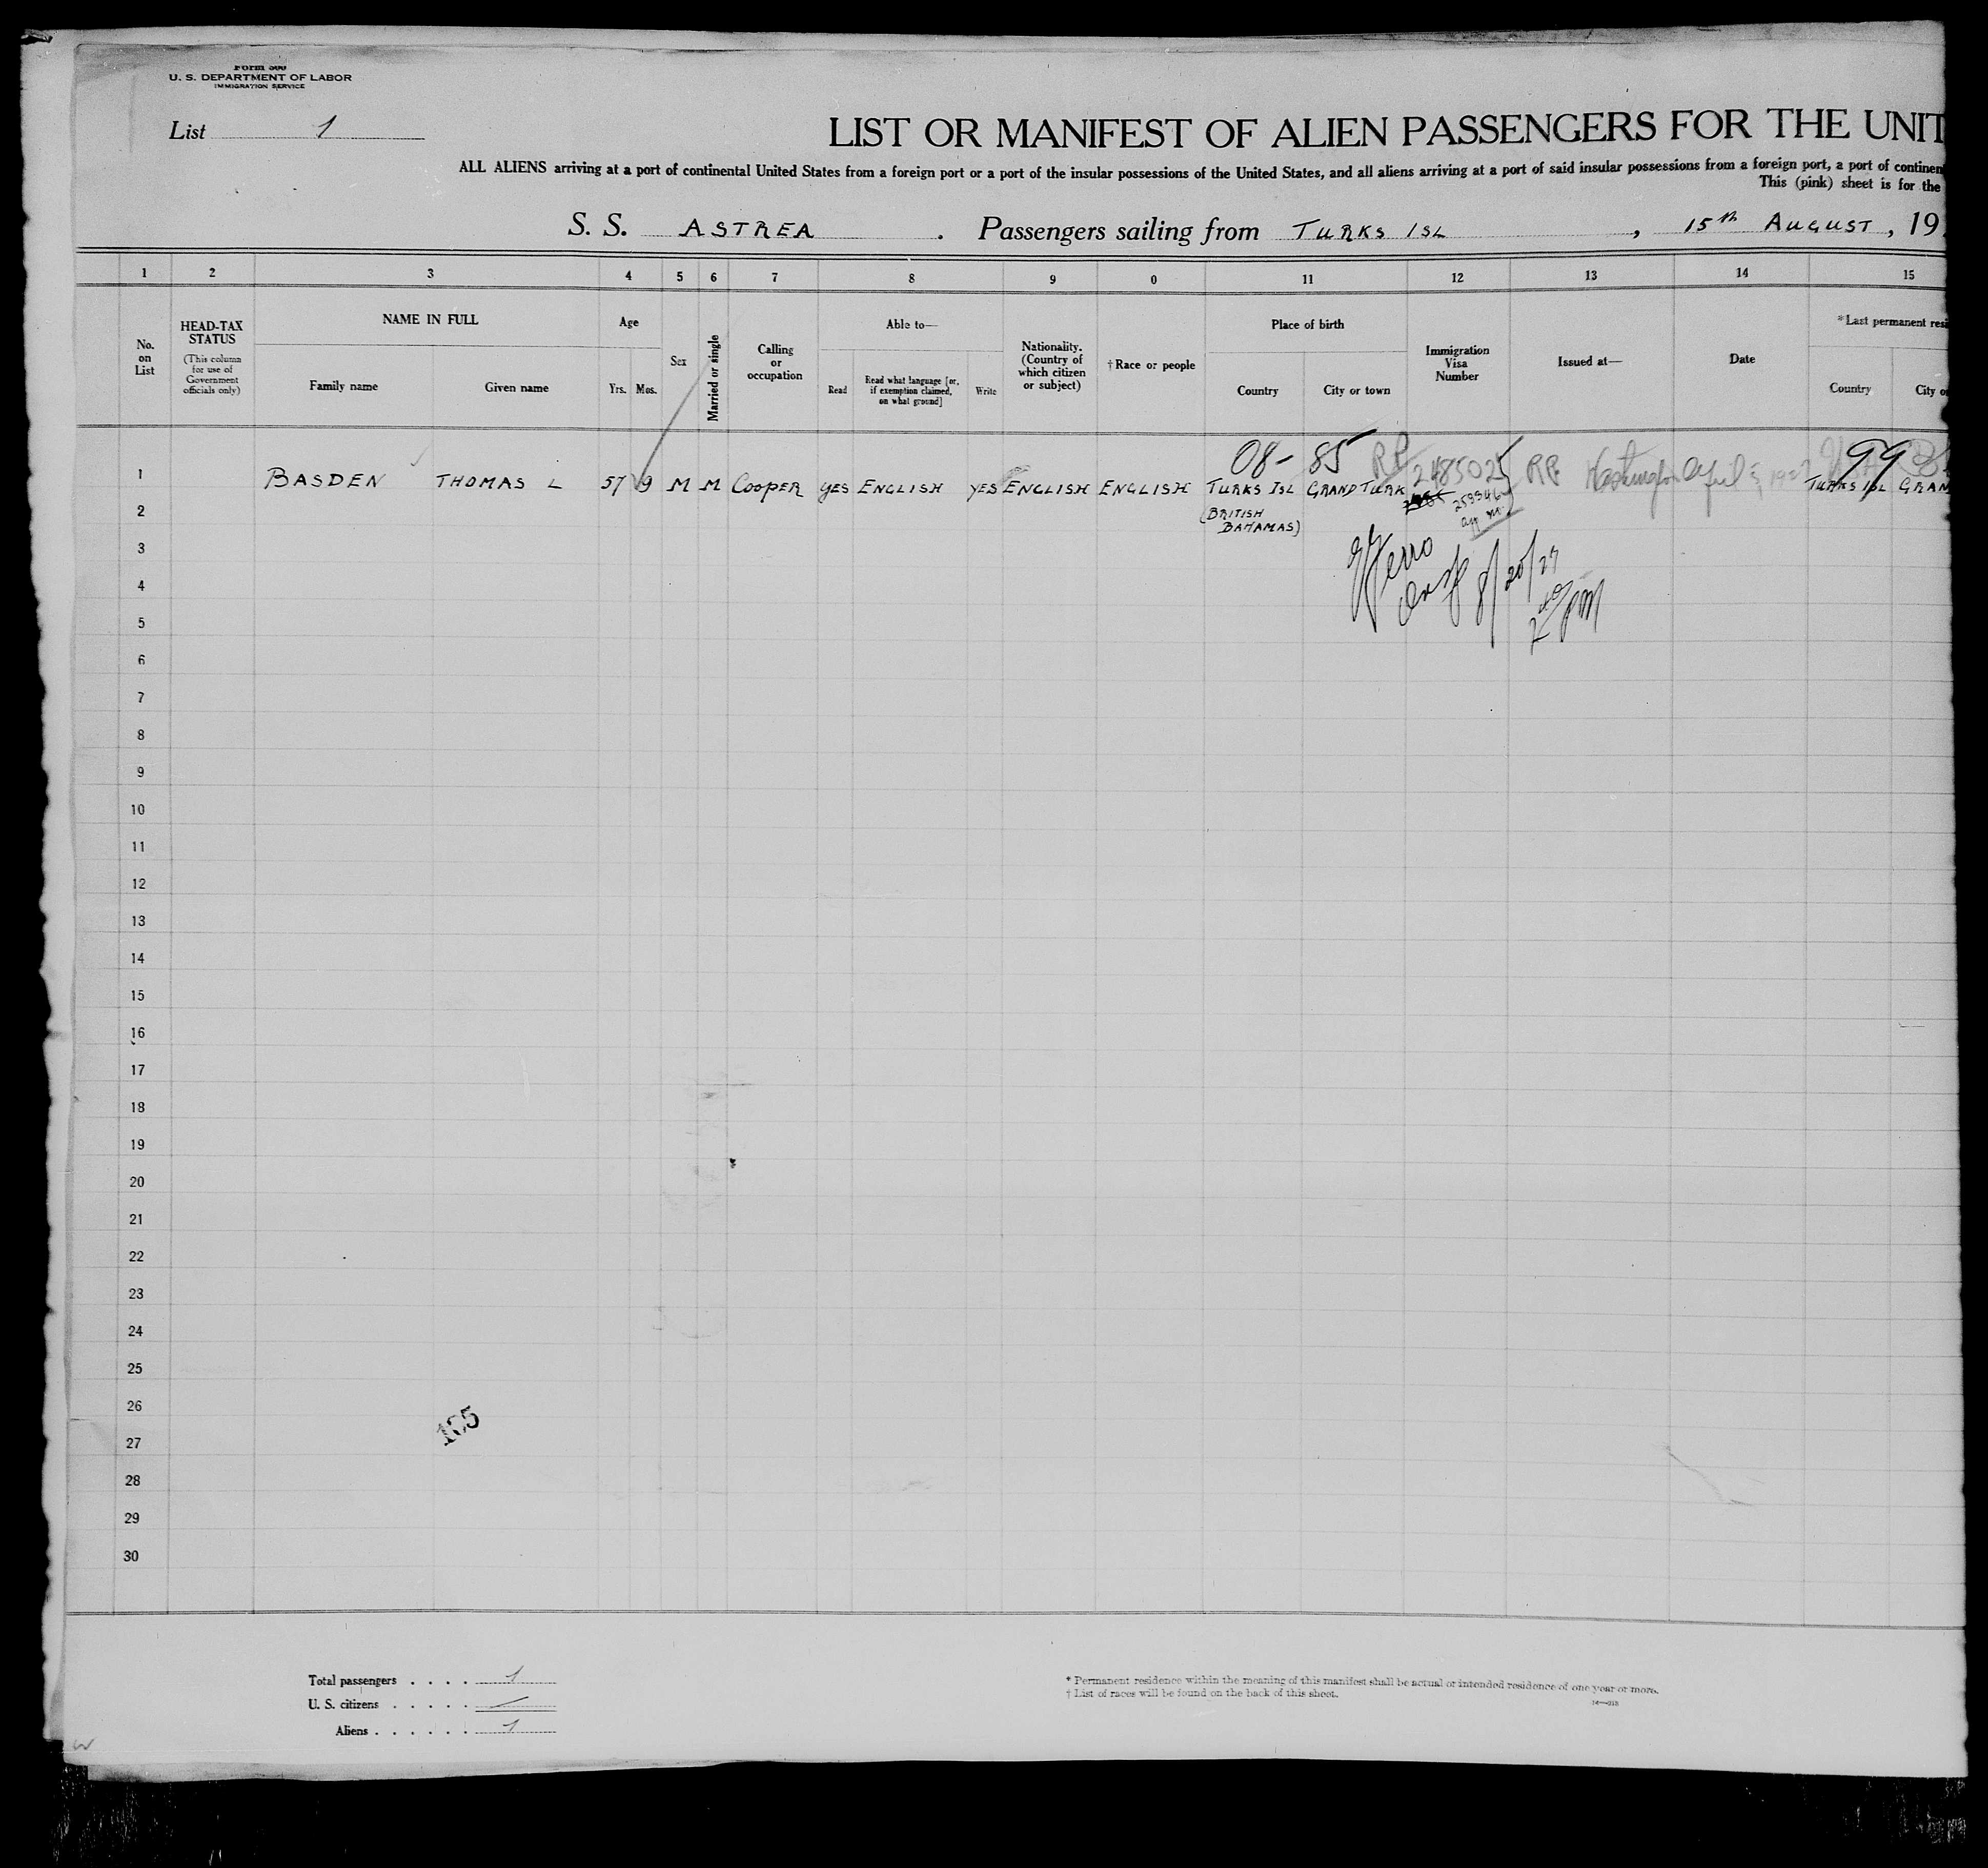 Form 500
U. S. DEPARTMENT OF LABOR
IMMIGRATION SERVICE
List 1
LIST OR MANIFEST OF ALIEN PASSENGERS FOR THE UNIT
ALL ALIENS arriving at a port of continental United States from a foreign port or a port of the insular possessions of the United States, and all aliens arriving at a port of said insular possessions from a foreign port, a port of continen
This (pink) sheet is for the
S. S. ASTREA . Passengers sailing from TURKS ISL , 15th AUGUST , 19
1 2 3 4 5 6 7 8 9 0 11 12 13 14 15
No. on List
HEAD-TAX STATUS
(This column for use of Government officials only)
NAME IN FULL
Family name Given name
Age
Yrs. Mos.
Sex
Married or single
Calling or occupation
Able to—
Read
Read what language [or, if exemption claimed, on what ground]
Write
Nationality. (Country of which citizen or subject)
† Race or people
Place of birth
Country City or town
Immigration Visa Number
Issued at—
Date
* Last permanent resi
Country City o
08- 85 RP 2485025 RP Washington April 1927 99
1 BASDEN THOMAS L 57 9 M M COOPER YES ENGLISH YES ENGLISH ENGLISH TURKS ISL GRAND TURK TURKS ISL GRAN
(BRITISH
BAHAMAS)
2
3
8/20/27
4
2 40 PM
5
6
7
8
9
10
11
12
13
14
15
16
17
18
19
20
21
22
23
24
25
26
27
28
29
30
Total passengers . . . . 1
U. S. citizens . . . . .
Aliens . . . . . . 1
* Permanent residence within the meaning of this manifest shall be actual or intended residence of one year or more.
† List of races will be found on the back of this sheet.